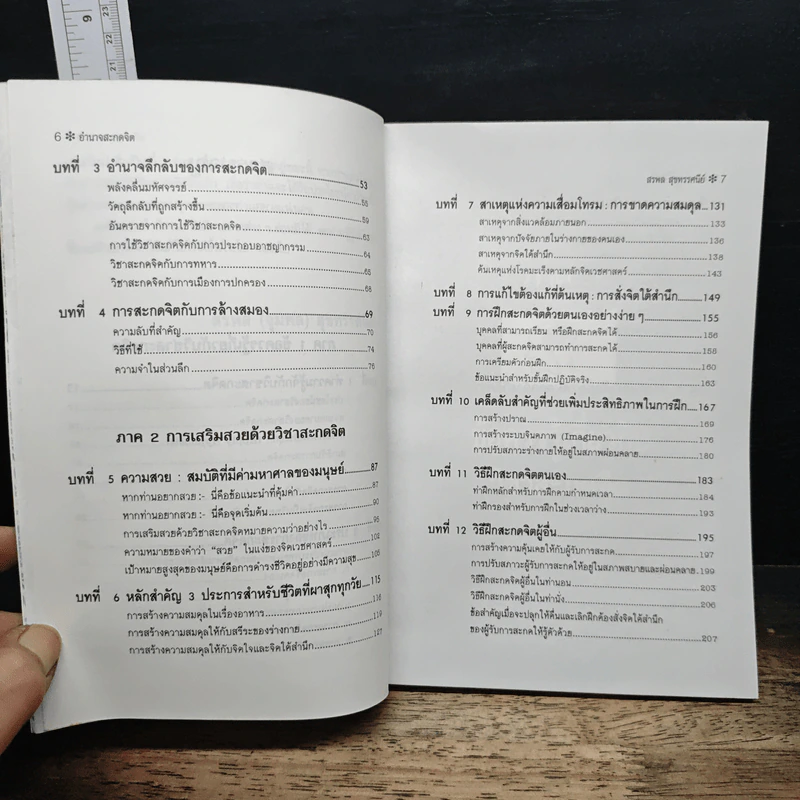 9
21
22
23
6 ✻ อำนาจสะกดจิต
บทที่ 3 อำนาจลึกลับของการสะกดจิต 53
พลังคลื่นมหัศจรรย์ 55
วัตถุลึกลับที่ถูกสร้างขึ้น 59
อันตรายจากการใช้วิชาสะกดจิต 63
การใช้วิชาสะกดจิตกับการประกอบอาชญากรรม 64
วิชาสะกดจิตกับการทหาร 65
วิชาสะกดจิตกับการเมืองการปกครอง 68
บทที่ 4 การสะกดจิตกับการล้างสมอง 69
ความลับที่สำคัญ 70
วิธีที่ใช้ 74
ความจำในส่วนลึก 76
ภาค 2 การเสริมสวยด้วยวิชาสะกดจิต
บทที่ 5 ความสวย : สมบัติที่มีค่ามหาศาลของมนุษย์ 87
หากท่านอยากสวย :- นี่คือข้อแนะนำที่คุ้มค่า 88
หากท่านอยากสวย :- นี่คือจุดเริ่มต้น 90
การเสริมสวยด้วยวิชาสะกดจิตหมายความว่าอย่างไร 95
ความหมายของคำว่า "สวย" ในแง่ของจิตเวชศาสตร์ 102
เป้าหมายสูงสุดของมนุษย์คือการดำรงชีวิตอยู่อย่างมีความสุข 105
บทที่ 6 หลักสำคัญ 3 ประการสำหรับชีวิตที่ผาสุกทุกวัย 115
การสร้างความสมดุลในเรื่องอาหาร 116
การสร้างความสมดุลให้กับสรีระของร่างกาย
การสร้างความสมดุลให้กับจิตใจและจิตใต้สำนึก 127
สรพล สุขทรรศนีย์ ✻ 7
บทที่ 7 สาเหตุแห่งความเสื่อมโทรม : การขาดความสมดุล 131
สาเหตุจากสิ่งแวดล้อมภายนอก 133
สาเหตุจากปัจจัยภายในร่างกายของคนเอง 136
สาเหตุจากจิตใต้สำนึก 138
ต้นเหตุแห่งโรคมะเร็งตามหลักจิตเวชศาสตร์ 143
บทที่ 8 การแก้ไขต้องแก้ที่ต้นเหตุ : การสั่งจิตใต้สำนึก 149
บทที่ 9 การฝึกสะกดจิตด้วยตนเองอย่างง่าย ๆ 155
บุคคลที่สามารถเรียน หรือฝึกสะกดจิตได้ 156
บุคคลที่ผู้สะกดจิตสามารถทำการสะกดได้ 158
การเตรียมตัวก่อนฝึก 160
ข้อแนะนำสำหรับขั้นฝึกปฏิบัติจริง 163
บทที่ 10 เคล็ดลับสำคัญที่ช่วยเพิ่มประสิทธิภาพในการฝึก 167
การสร้างปราณ 169
การสร้างระบบจินตภาพ (Imagine) 176
การปรับสภาวะร่างกายให้อยู่ในสภาพผ่อนคลาย 180
บทที่ 11 วิธีฝึกสะกดจิตตนเอง 183
ท่าฝึกหลักสำหรับการฝึกตามกำหนดเวลา 184
ท่าฝึกรองสำหรับการฝึกในช่วงเวลาว่าง 193
บทที่ 12 วิธีฝึกสะกดจิตผู้อื่น 195
การสร้างความคุ้นเคยให้กับผู้รับการสะกด 197
การปรับสภาวะผู้รับการสะกดให้อยู่ในสภาพสบายและผ่อนคลาย 199
วิธีฝึกสะกดจิตผู้อื่นในท่านอน 203
วิธีฝึกสะกดจิตผู้อื่นในท่านั่ง 206
ข้อสำคัญเมื่อจะปลุกให้ตื่นและเลิกฝึกต้องสั่งจิตใต้สำนึก
ของผู้รับการสะกดให้รู้ตัวด้วย 207